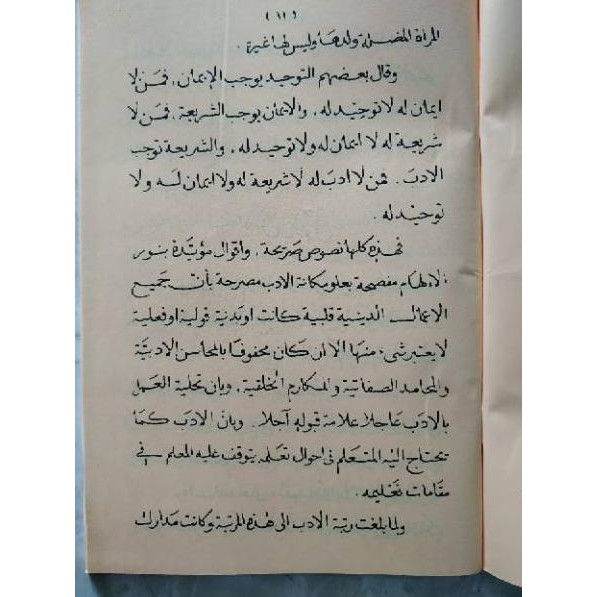 (١١)
المرأة المضلة ولدها وليس لها غيره.
وقال بعضهم التوحيد يوجب الإيمان، فمن لا
ايمان له لا توحيد له، والايمان يوجب الشريعة، فمن لا
شريعة له لا ايمان له ولا توحيد له، والشريعة توجب
الادب، فمن لا ادب له لا شريعة له ولا ايمان له ولا
توحيد له.
فهذه كلها نصوص صريحة، واقوال مؤيدة بنور
الالهام مفصحة بعلو مكانة الادب مصرحة بأن جميع
الاعمال الدينية قلبية كانت او بدنية قولية او فعلية
لا يعتبر شيء منها الا ان كان محفوفا بالمحاسن الادبية
والمحامد الصفاتية والمكارم الخلقية، وبان تحلية العمل
بالادب عاجلا علامة قبوله آجلا، وبان الادب كما
يحتاج اليه المتعلم في احوال تعلمه يتوقف عليه المعلم في
مقامات تعليمه.
ولما بلغت رتبة الادب الى هذه المرتبة وكانت مدارك